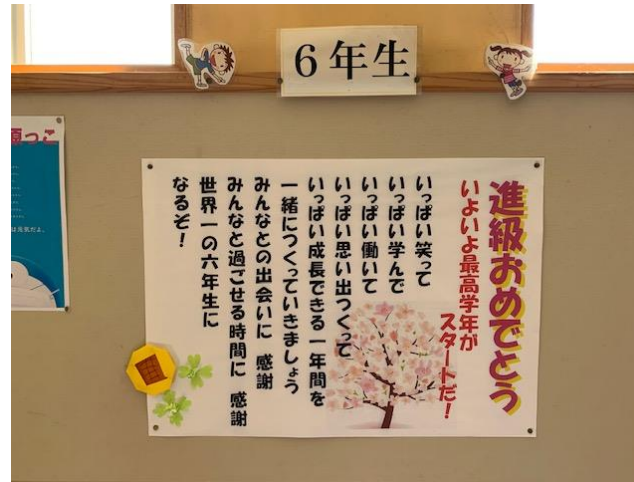 6年生
進級おめでとう
いよいよ最高学年が
スタートだ!
いっぱい笑って
いっぱい学んで
いっぱい働いて
いっぱい思い出つくって
いっぱい成長できる一年間を
一緒につくっていきましょう
みんなとの出会いに 感謝
みんなと過ごせる時間に 感謝
世界一の六年生に
なるぞ!
っこ
は元気だよ。